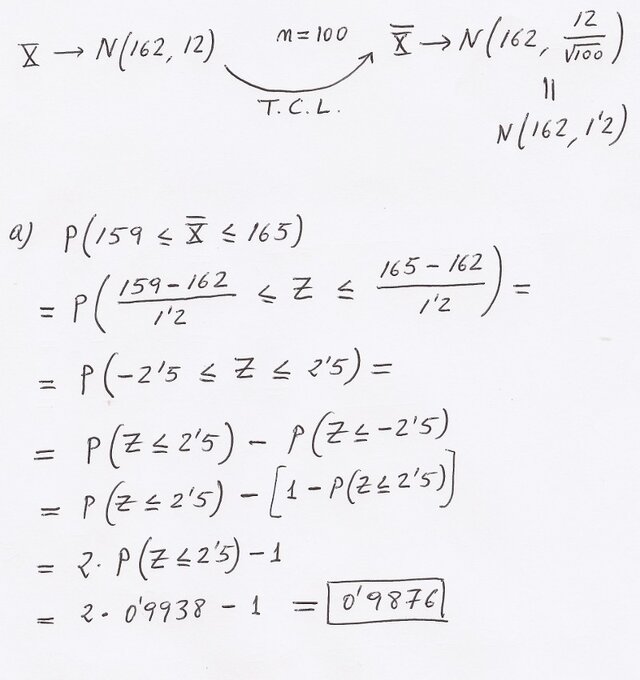 X → N(162, 12) n=100 X̅ → N(162, 12/√100)
T.C.L. ||
N(162, 1'2)
a) P(159 ≤ X̅ ≤ 165)
= P((159-162)/1'2 ≤ Z ≤ (165-162)/1'2) =
= P(-2'5 ≤ Z ≤ 2'5) =
= P(Z ≤ 2'5) - P(Z ≤ -2'5)
= P(Z ≤ 2'5) - [1 - P(Z ≤ 2'5)]
= 2· P(Z ≤ 2'5) - 1
= 2· 0'9938 - 1 = 0'9876